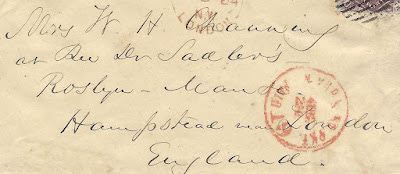 Mrs W H Channing
at Rev Dr Sadler's
Rosslyn - Manse
Hampstead near London
England.
LONDON
NEW YORK